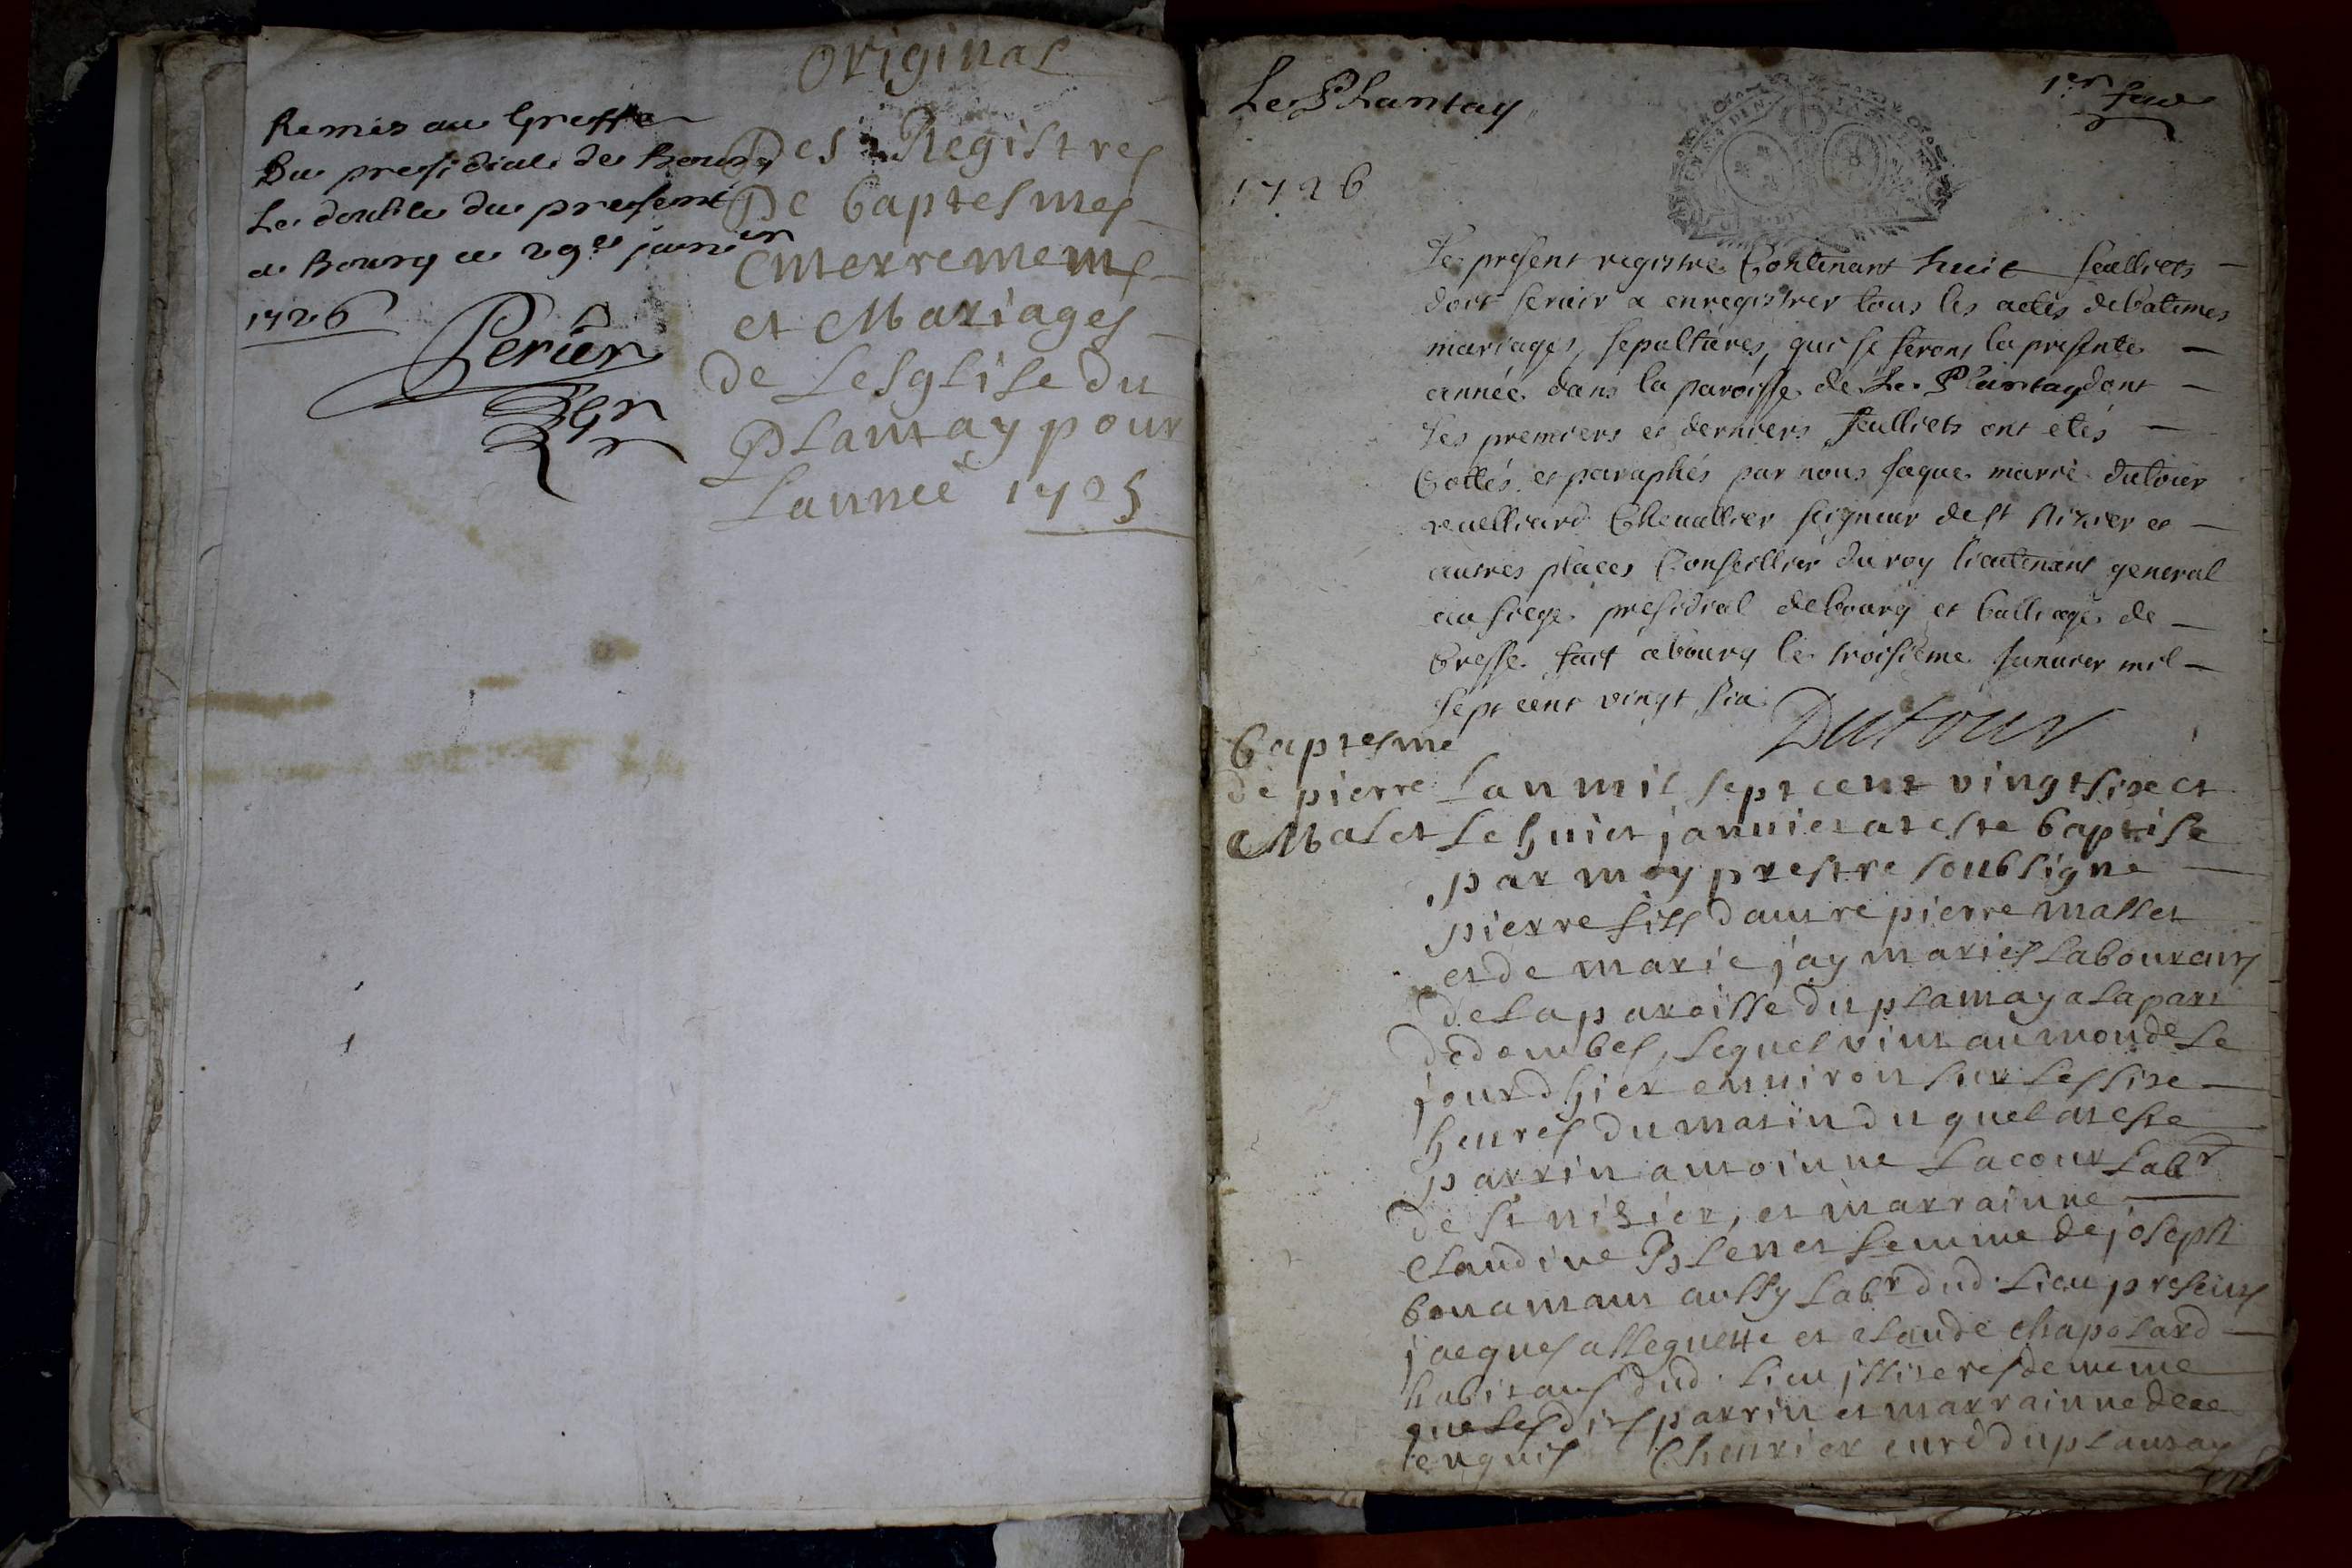 Original
Remis au Greffe
Du presidial de Bourg
Le double du present
a Bourg ce 29e janvier
1726
Perier
Des Registres
De baptesmes
enterremens
et Mariages
de Lesglise du
Plantay pour
Lannee 1725
Le Plantay
1er
1726
Le present registre Contenant huit feulliets
doit servir a enregistrer tous les actes de batemes
mariages, sepultures, qui se feront la presente
année dans la paroisse de Le Plantay dont
les premiers et derniers feulliets ont etés
Cottés et paraphés par nous Jaque marie dutour
vuelliard Chevallier seigneur de st Nizier et
autres places Conseillier du roy lieutenant general
au siege presidial de bourg et balliage de
bresse fait a bourg le troisieme Janvier mil
sept cent vingt six
Dutour
baptesme
de pierre
Malet
Lan mil sept cent vingt sixe et
Le huict janvier at este baptisé
par moy prestre soubsigne
pierre fils dautre pierre mallet
et de marie jay mariés laboureurs
de la paroisse du plantay a la part
de dombes, lequel vint au monde le
jour dhier environ sur les sixe
heures du matin du quel at este
parrin antoinne Lacour labr
de st nizier, et marrainne
claudine Plenet femme de joseph
bonamant aussy labr dud. lieu presens
jacques alleguette et claude chapolard
habitans dud. lieu illiteres de meme
que lesdits parrin et marrainne de ce
enquis Chevrier curé du plantay